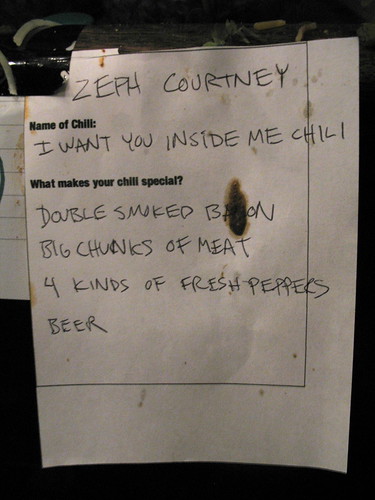 ZEPH COURTNEY
Name of Chili:
I WANT YOU INSIDE ME CHILI
What makes your chili special?
DOUBLE SMOKED BACON
BIG CHUNKS OF MEAT
4 KINDS OF FRESH PEPPERS
BEER